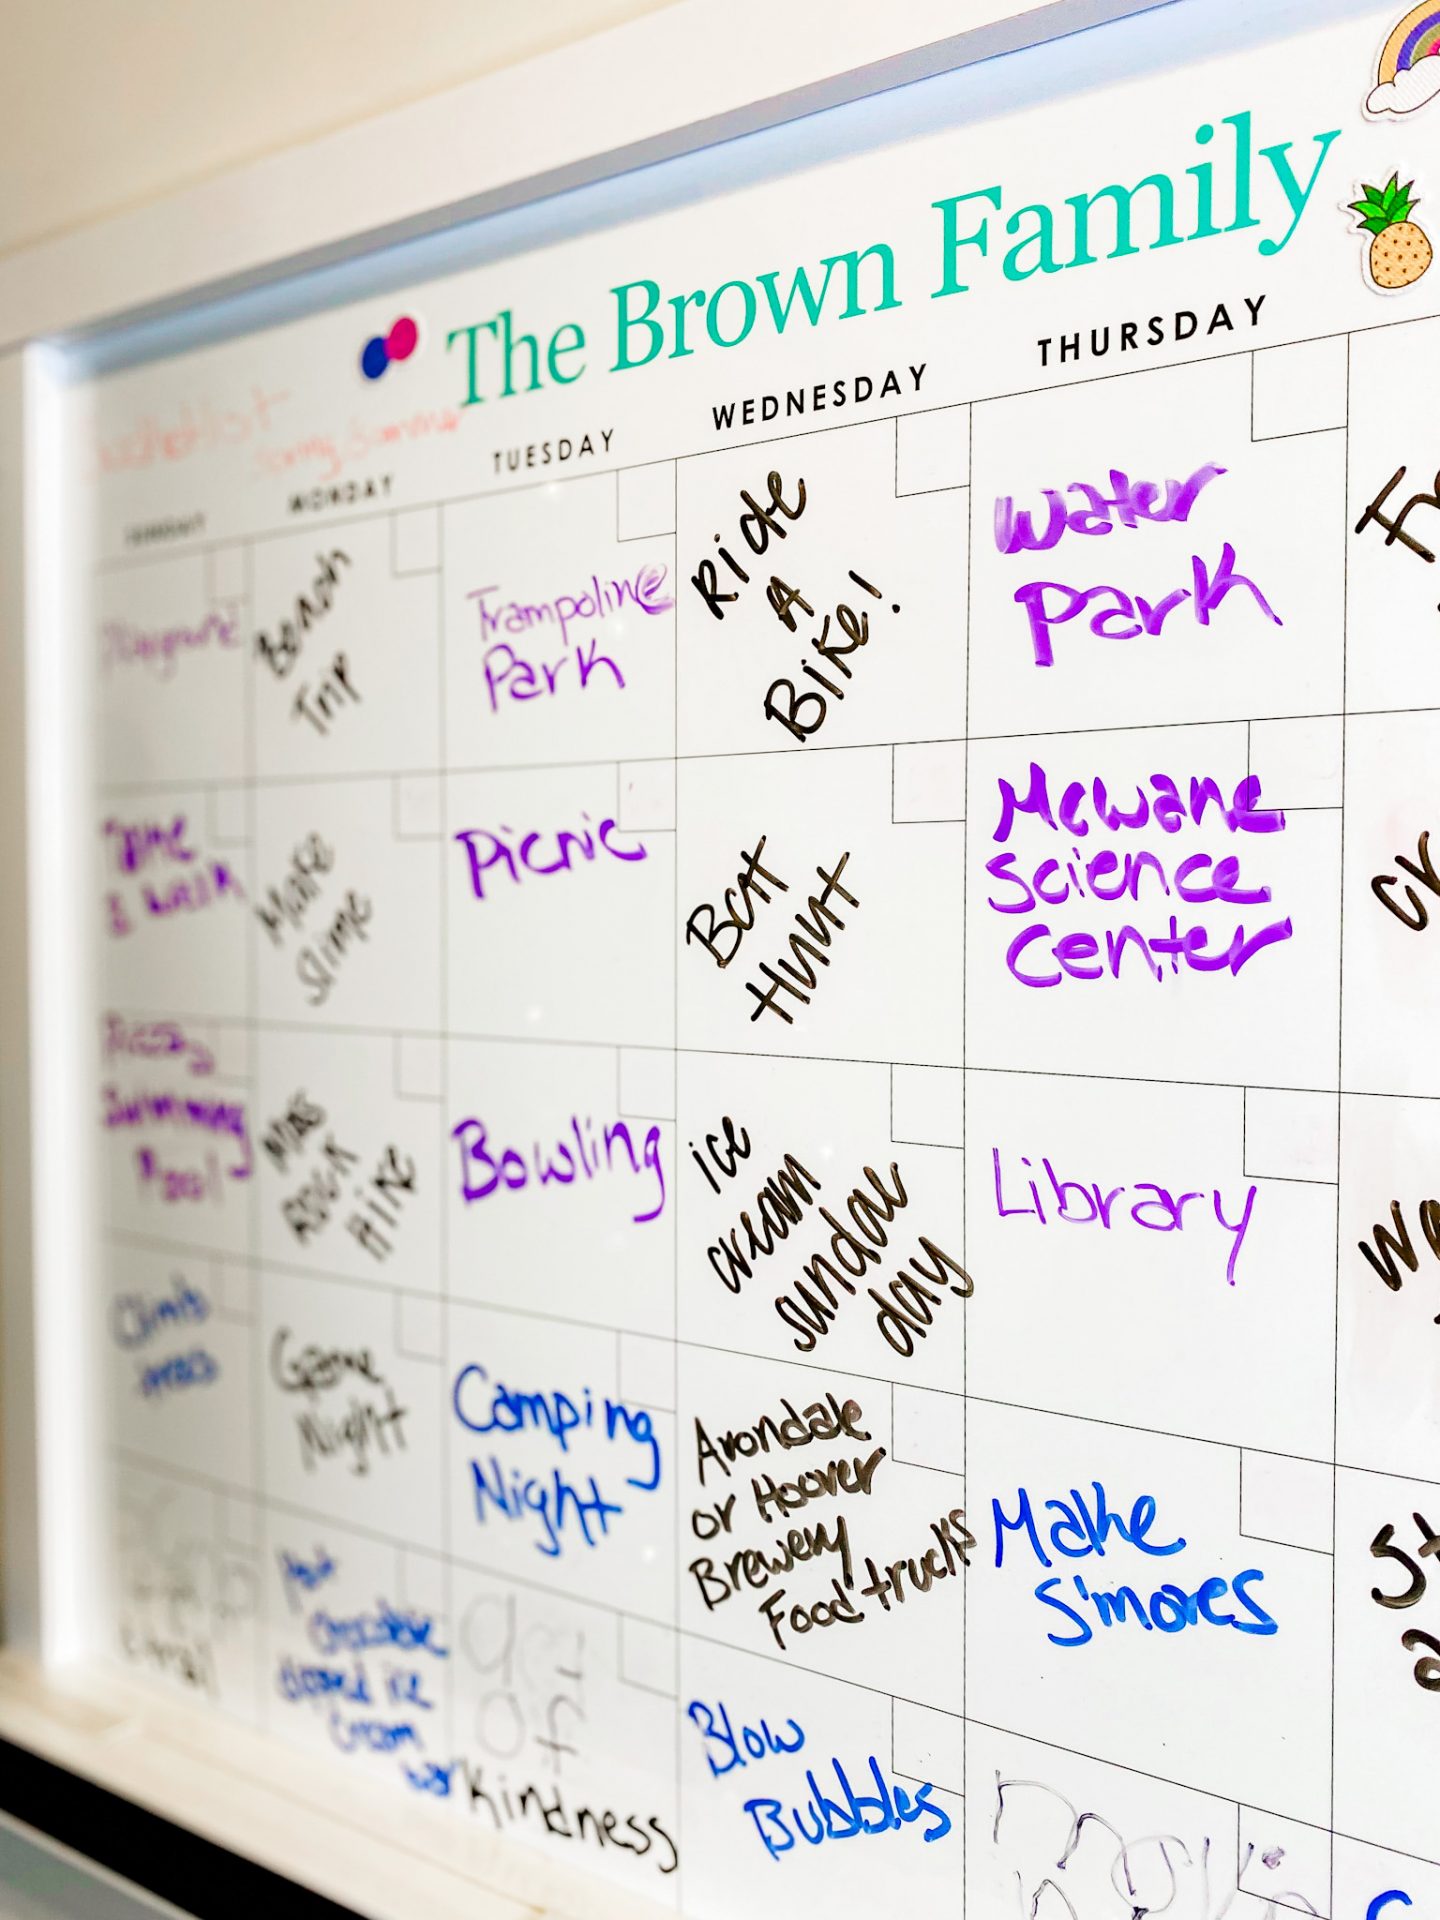 The Brown Family
Bucketlist
Spring Summer
SUNDAY
MONDAY
TUESDAY
WEDNESDAY
THURSDAY
Playground
Beach
Trip
Trampoline
Park
Ride
A
Bike!
Water
Park
Take
a walk
Make
Slime
Picnic
Boat
Hunt
McWane
science
center
Swimming
Pool
Moss
Rock
Hike
Bowling
ice
cream
sundae
day
Library
Climb
trees
Game
Night
Camping
Night
Avondale
or Hoover
Brewery
Food trucks
Make
S'mores
chocolate
dipped ice
cream
Of
Kindness
Blow
Bubbles